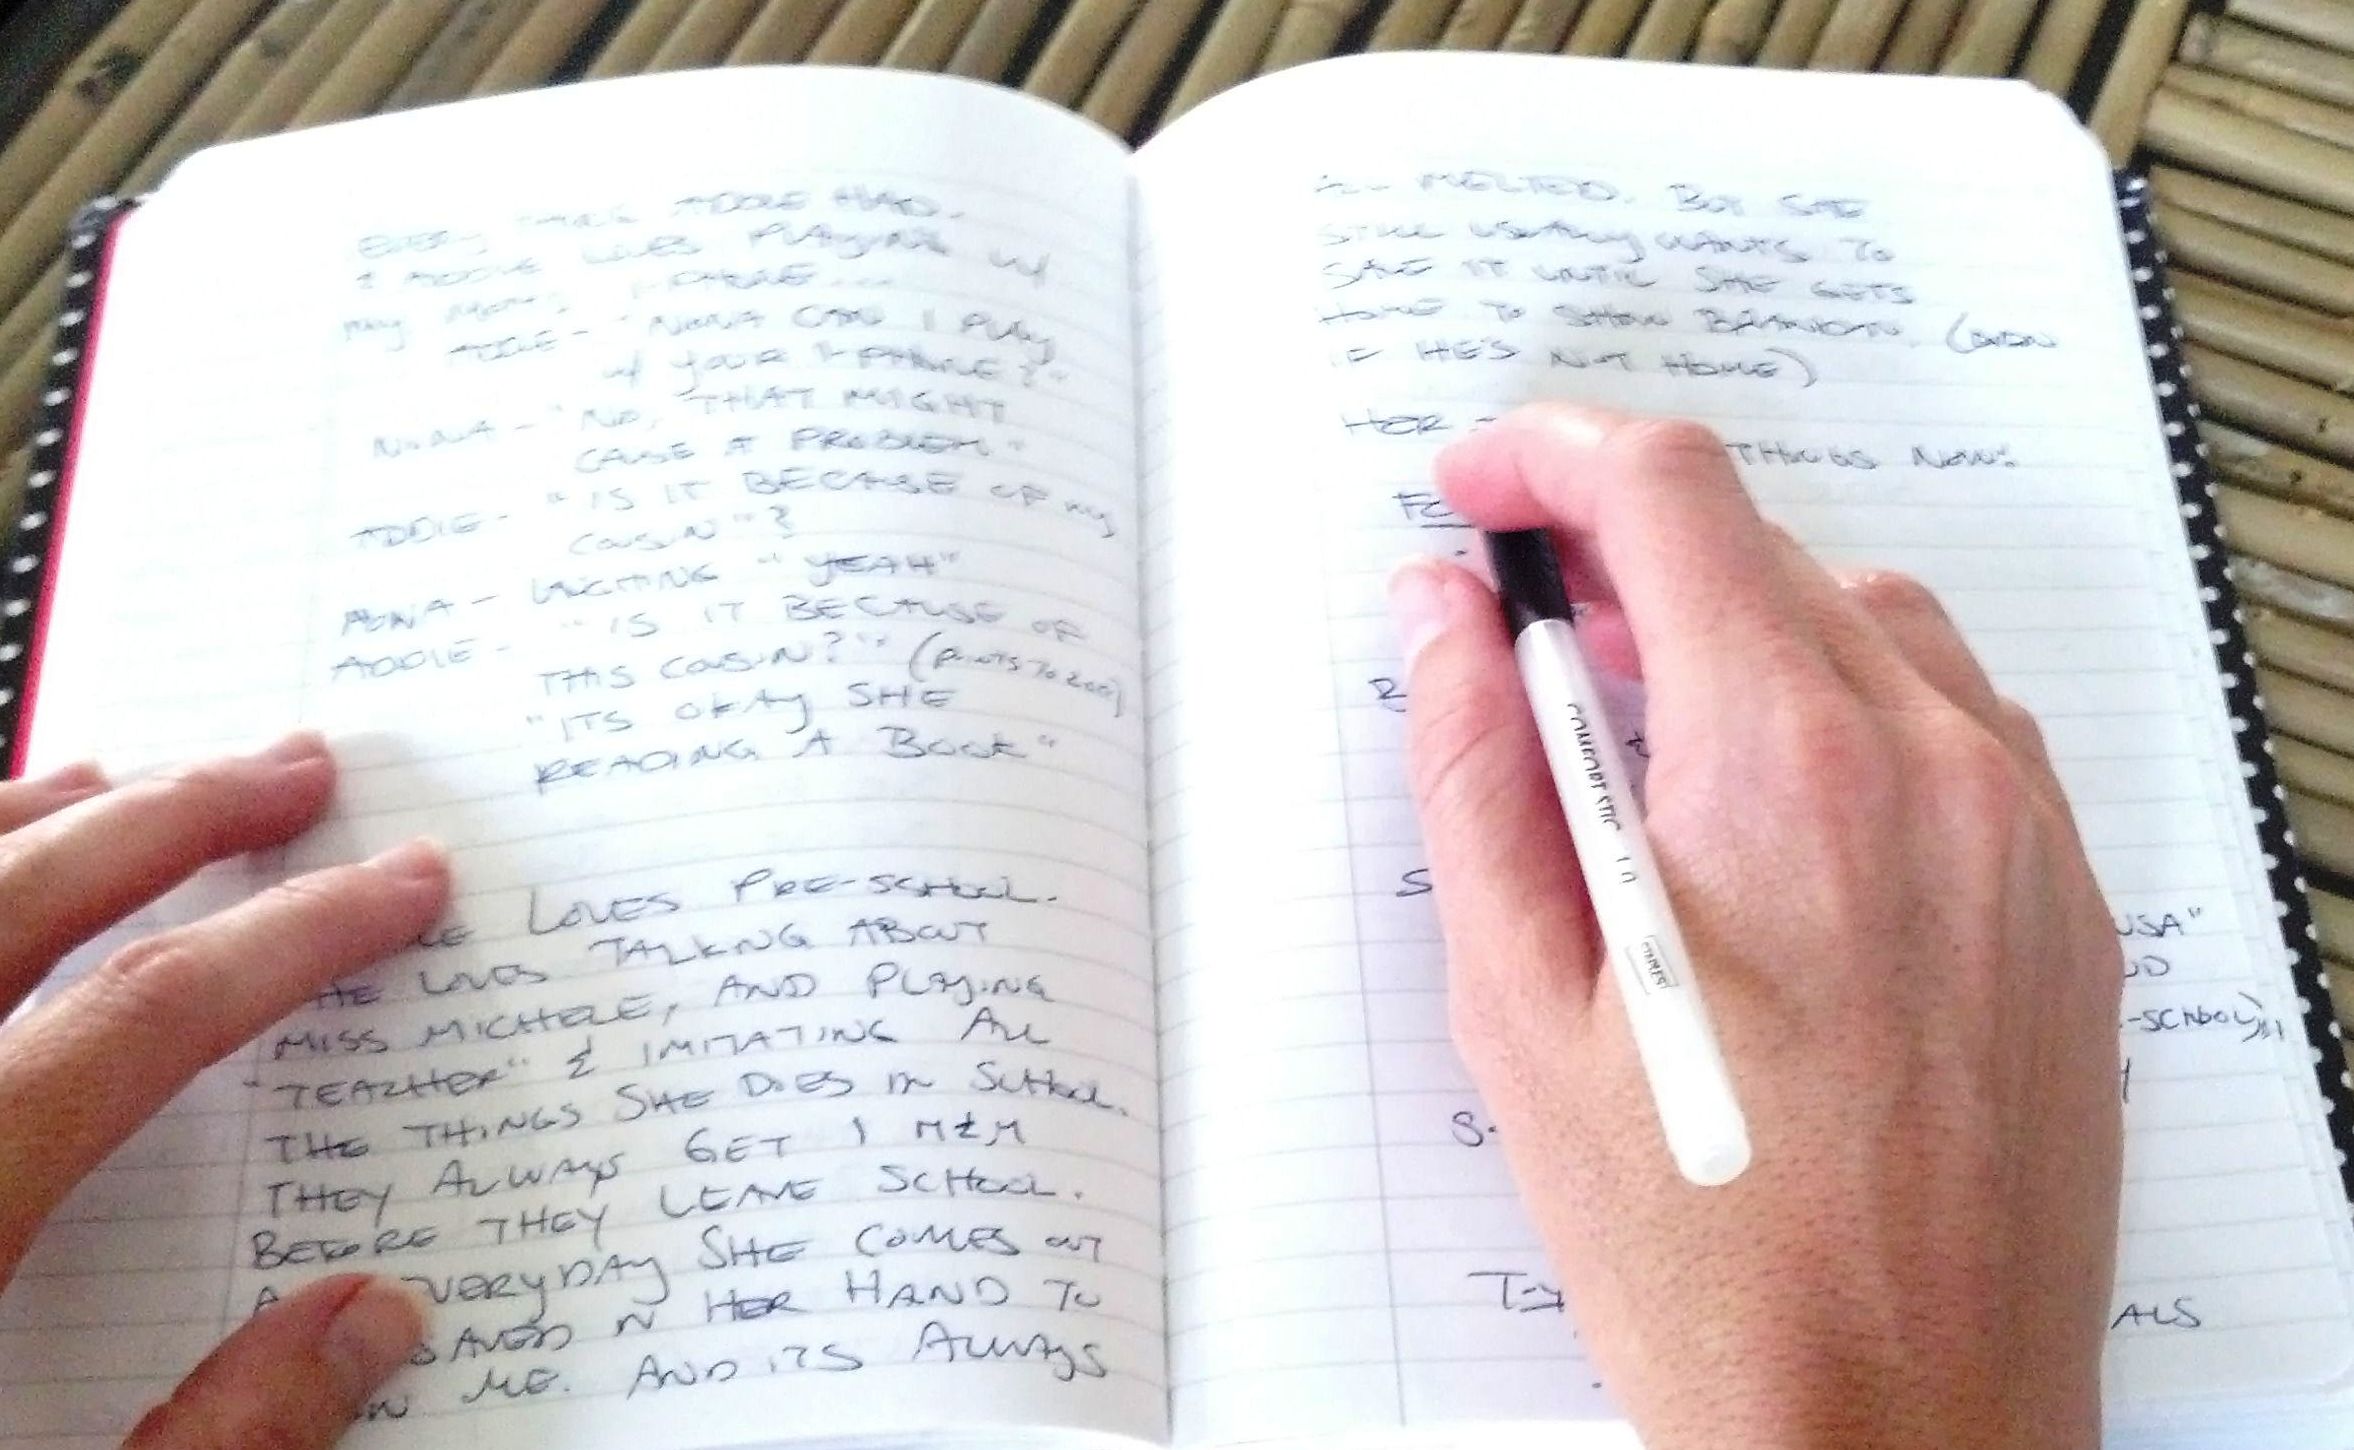 EVERY THING ADDIE HAD.
& ADDIE LOVES PLAYING W/
MY MOM'S I-PHONE...
ADDIE - "NONA CAN I PLAY
W/ YOUR I-PHONE?"
NONA - "NO, THAT MIGHT
CAUSE A PROBLEM"
ADDIE - "IS IT BECAUSE OF MY
COUSIN"?
NONA - LAUGHING "YEAH"
ADDIE - "IS IT BECAUSE OF
THIS COUSIN?" (POINTS TO ZOE)
"ITS OKAY SHE
READING A BOOK"
LOVES PRE-SCHOOL.
HE LOVES TALKING ABOUT
MISS MICHELE, AND PLAYING
"TEACHER" & IMITATING ALL
THE THINGS SHE DOES IN SCHOOL.
THEY ALWAYS GET 1 M&M
BEFORE THEY LEAVE SCHOOL.
EVERYDAY SHE COMES OUT
SAVED IN HER HAND TO
ME. AND ITS ALWAYS
MELTED. BUT SHE
STILL USUALLY WANTS TO
SAVE IT UNTIL SHE GETS
HOME TO SHOW BRANDON. (EVEN
IF HE'S NOT HOME)
HER
THINGS NOW:
USA"
-SCHOOL)
ALS
COMFORT STIC 1.0